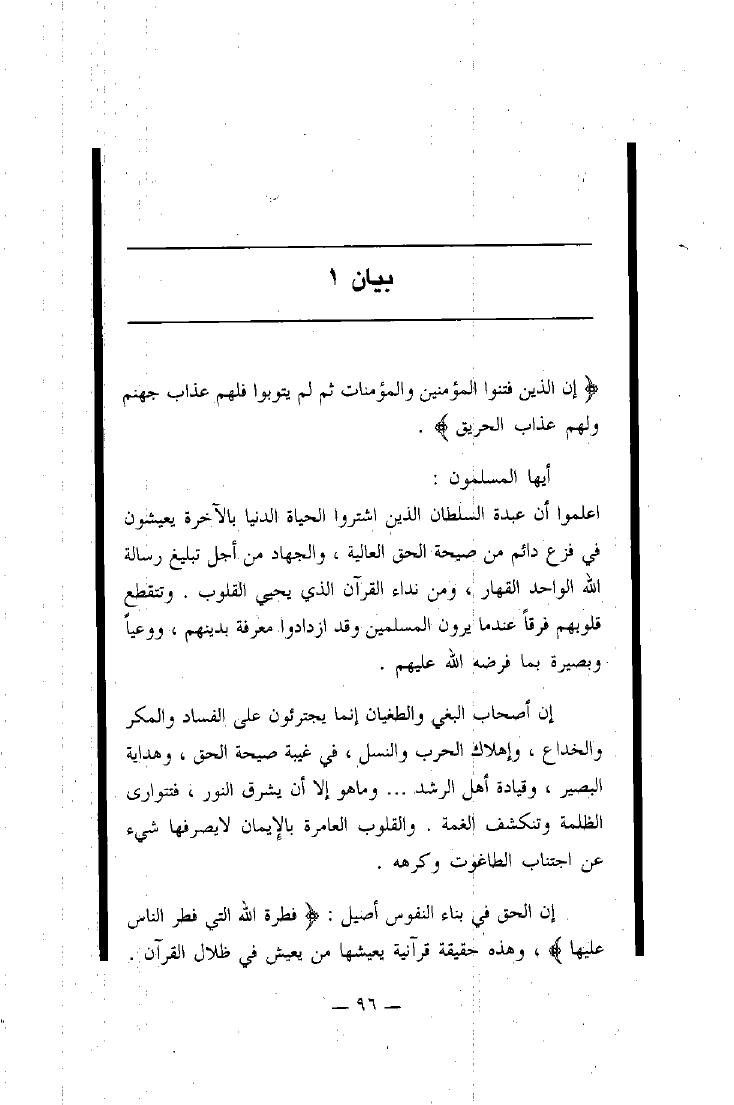 بيان ١
﴿ إن الذين فتنوا المؤمنين والمؤمنات ثم لم يتوبوا فلهم عذاب جهنم
ولهم عذاب الحريق ﴾ .
أيها المسلمون :
اعلموا أن عبدة السلطان الذين اشتروا الحياة الدنيا بالآخرة يعيشون
في فزع دائم من صيحة الحق العالية ، والجهاد من أجل تبليغ رسالة
الله الواحد القهار ، ومن نداء القرآن الذي يحيي القلوب . وتتقطع
قلوبهم فرقاً عندما يرون المسلمين وقد ازدادوا معرفة بدينهم ، ووعياً
وبصيرة بما فرضه الله عليهم .
إن أصحاب البغي والطغيان إنما يجترئون على الفساد والمكر
والخداع ، وإهلاك الحرب والنسل ، في غيبة صيحة الحق ، وهداية
البصير ، وقيادة أهل الرشد ... وماهو إلا أن يشرق النور ، فتتوارى
الظلمة وتنكشف الغمة . والقلوب العامرة بالإيمان لايصرفها شيء
عن اجتناب الطاغوت وكرهه .
إن الحق في بناء النفوس أصيل : ﴿ فطرة الله التي فطر الناس
عليها ﴾ ، وهذه حقيقة قرآنية يعيشها من يعيش في ظلال القرآن .
— ٩٦ —